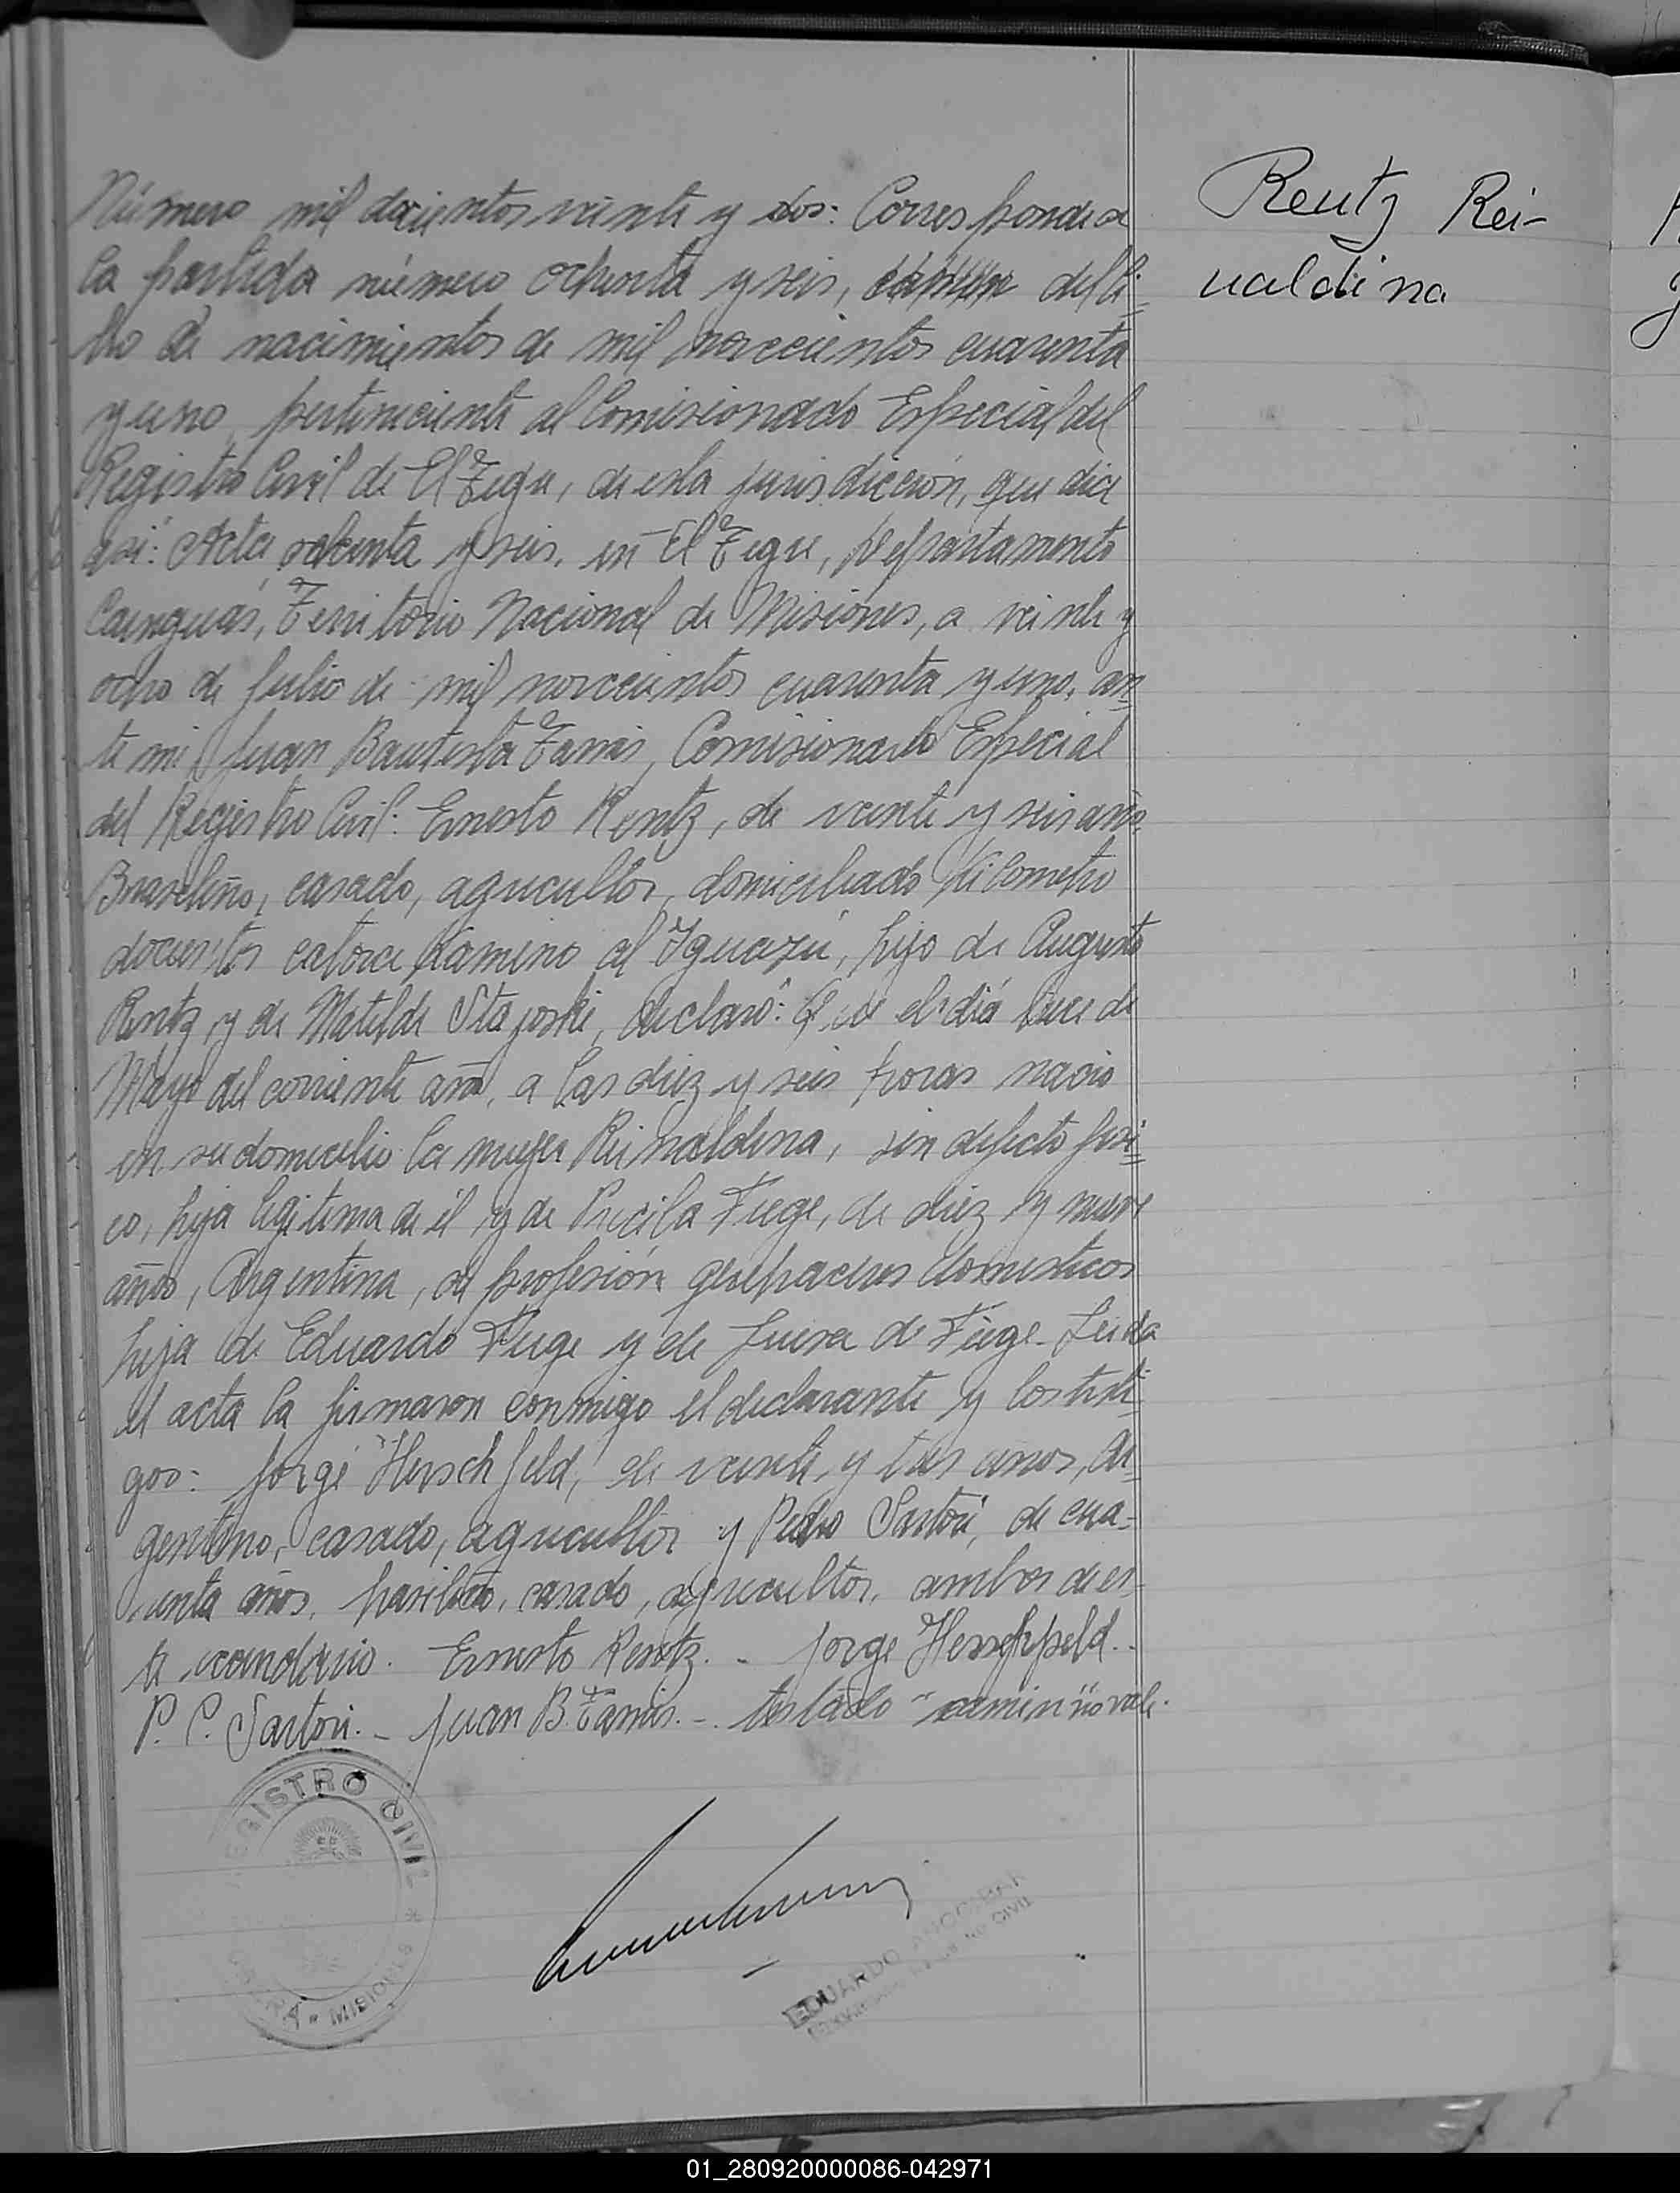 Número mil docientos veinte y dos: Corresponde a
la partida número ochenta y seis, del li-
bro de nacimientos de mil novecientos cuarenta
y uno, perteneciente al Comisionado Especial del
Registro Civil de El Tigre, de esta jurisdiccion, que dice
así: Acta ochenta y seis. en El Tigre, Departamento
Cainguás, Territorio Nacional de Misiones, a veinte y
ocho de Julio de mil novecientos cuarenta y uno, an-
te mi Juan Bautista, Comisionado Especial
del Registro Civil: Ernesto Rentz, de veinte y seis años,
Brasileño, casado, agricultor, domiciliado Kilometro
docientos catorce Kamino al Iguazú, hijo de Augusto
Rentz y de Matilde, declaró: Que el día de
Mayo del corriente año, a las diez y seis horas nacio
en su domicilio la mujer Reinaldina, sin defecto físi-
co, hija legitima de él y de Pricila Fiege, de diez y nueve
años, Argentina, de profesión quehaceres domesticos
hija de Eduardo Fiege y de de Fiege. Leida
el acta la firmaron conmigo el declarante y los testi-
gos: Jorge Herschfeld, de veinte y tres años, Ar-
gentino, casado, agricultor y Pedro Sartori, de cua-
renta años, brasileño, casado, agricultor, ambos de es-
te vecindario. Ernesto Rentz. - Jorge Herschfeld. -
P. C. Sartori. - Juan B. - testado "camin" no vale.
Rentz Rei-
naldina
REGISTRO CIVIL
MISIONES
EDUARDO
CIVIL
01_280920000086-042971